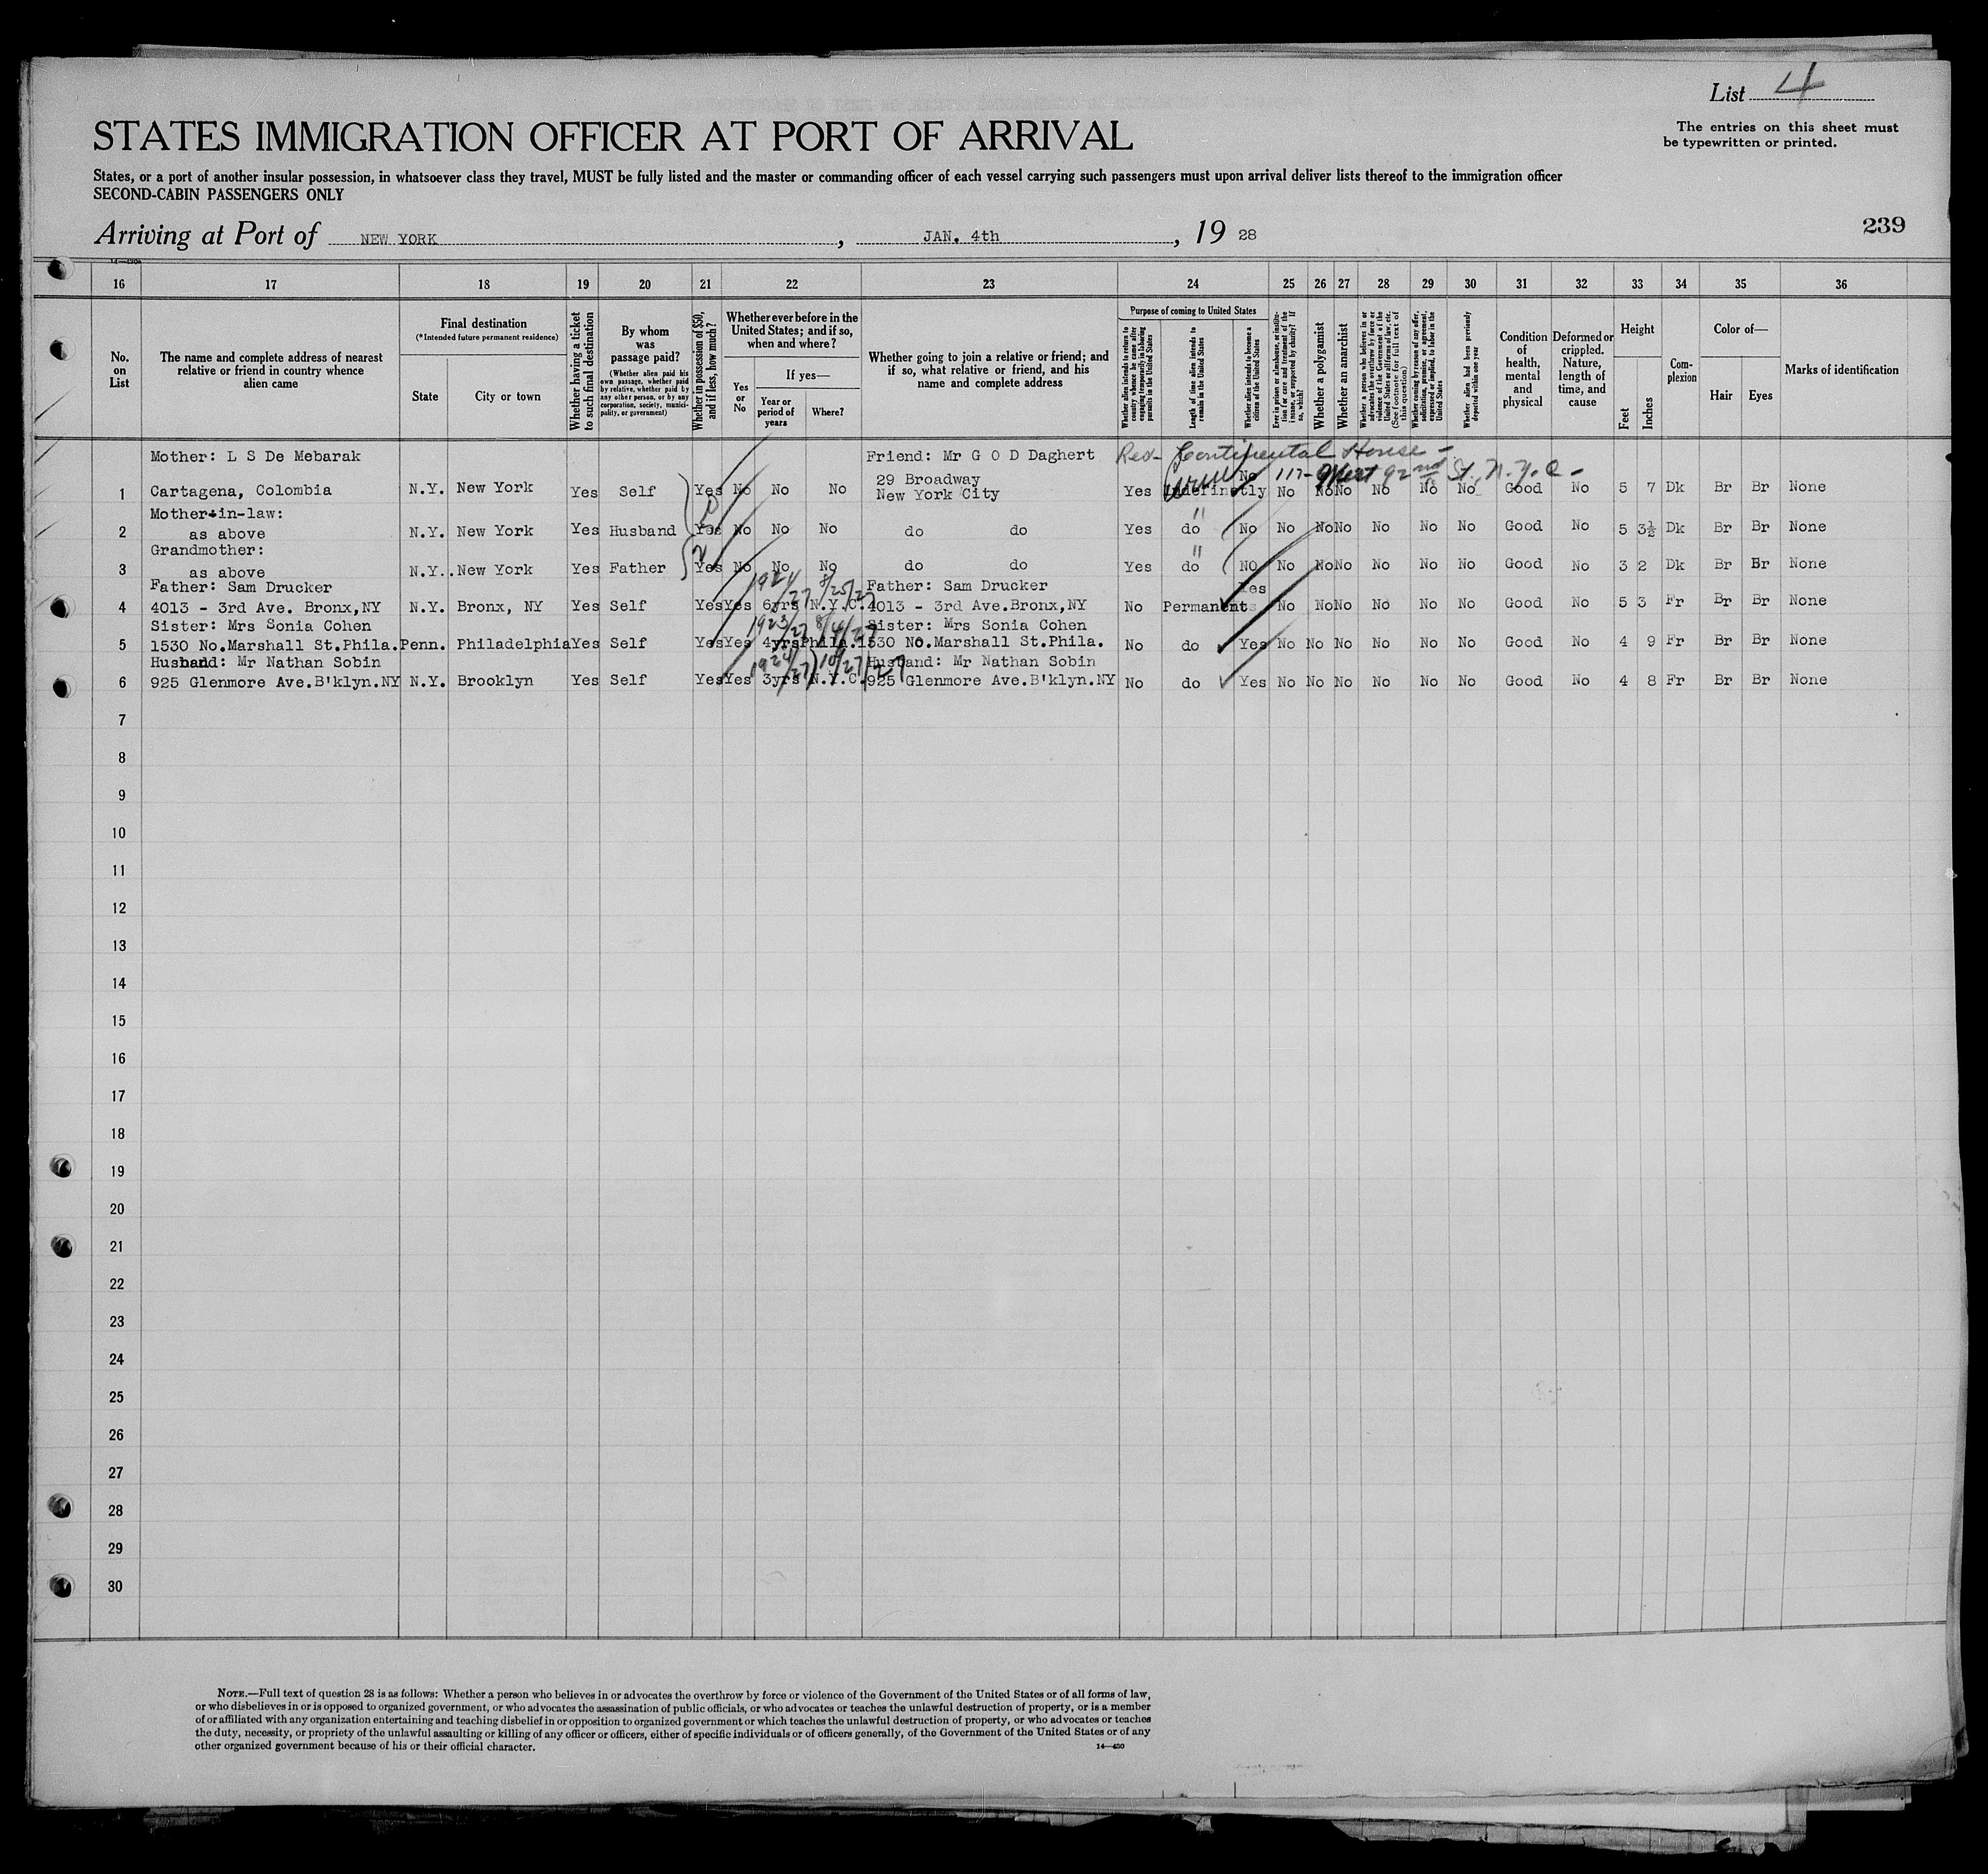 List 4
The entries on this sheet must
be typewritten or printed.
STATES IMMIGRATION OFFICER AT PORT OF ARRIVAL
States, or a port of another insular possession, in whatsoever class they travel, MUST be fully listed and the master or commanding officer of each vessel carrying such passengers must upon arrival deliver lists thereof to the immigration officer
SECOND-CABIN PASSENGERS ONLY
Arriving at Port of NEW YORK, JAN. 4th, 19 28
239
16 17 18 19 20 21 22 23 24 25 26 27 28 29 30 31 32 33 34 35 36
No. on List
The name and complete address of nearest relative or friend in country whence alien came
Final destination
(*Intended future permanent residence)
State
City or town
Whether having a ticket to such final destination
By whom was passage paid?
(Whether alien paid his own passage, whether paid by relative, whether paid by any other person, or by any corporation, society, municipality, or government)
Whether in possession of $50, and if less, how much?
Whether ever before in the United States; and if so, when and where?
Yes or No
If yes—
Year or period of years
Where?
Whether going to join a relative or friend; and if so, what relative or friend, and his name and complete address
Purpose of coming to United States
Whether alien intends to return to country whence he came after engaging temporarily in laboring pursuits in the United States
Length of time alien intends to remain in the United States
Whether alien intends to become a citizen of the United States
Ever in prison or almshouse, or institution for care and treatment of the insane, or supported by charity? If so, which?
Whether a polygamist
Whether an anarchist
Whether a person who believes in or advocates the overthrow by force or violence of the Government of the United States or all forms of law, etc. (See footnote for full text of this question)
Whether coming by reason of any offer, solicitation, promise, or agreement, expressed or implied, to labor in the United States
Whether alien had been previously deported within one year
Condition of health, mental and physical
Deformed or crippled. Nature, length of time, and cause
Height
Feet
Inches
Complexion
Color of—
Hair
Eyes
Marks of identification
Mother: L S De Mebarak Friend: Mr G O D Daghert Continental House -
29 Broadway No 117 - West 92nd St. N.Y.C -
1 Cartagena, Colombia N.Y. New York Yes Self Yes No No No New York City Yes Indefinitly No No No No No No Good No 5 7 Dk Br Br None
Mother-in-law: "
2 as above N.Y. New York Yes Husband Yes No No No do do Yes do No No No No No No No Good No 5 3½ Dk Br Br None
Grandmother: "
3 as above N.Y. New York Yes Father Yes No No No do do Yes do No No No No No No No Good No 3 2 Dk Br Br None
Father: Sam Drucker 1921/27 8/25/27 Father: Sam Drucker Yes
4 4013 - 3rd Ave. Bronx,NY N.Y. Bronx, NY Yes Self Yes Yes 6yrs N.Y.C. 4013 - 3rd Ave.Bronx,NY No Permanent No No No No No No Good No 5 3 Fr Br Br None
Sister: Mrs Sonia Cohen 1923/27 8/4/27 Sister: Mrs Sonia Cohen
5 1530 No.Marshall St.Phila. Penn. Philadelphia Yes Self Yes Yes 4yrs Phila. 1530 No.Marshall St.Phila. No do Yes No No No No No No Good No 4 9 Fr Br Br None
Husband: Mr Nathan Sobin 1924/27 10/27/27 Husband: Mr Nathan Sobin
6 925 Glenmore Ave.B'klyn.NY N.Y. Brooklyn Yes Self Yes Yes 3yrs N.Y.C. 925 Glenmore Ave.B'klyn.NY No do Yes No No No No No No Good No 4 8 Fr Br Br None
7
8
9
10
11
12
13
14
15
16
17
18
19
20
21
22
23
24
25
26
27
28
29
30
NOTE.—Full text of question 28 is as follows: Whether a person who believes in or advocates the overthrow by force or violence of the Government of the United States or of all forms of law,
or who disbelieves in or is opposed to organized government, or who advocates the assassination of public officials, or who advocates or teaches the unlawful destruction of property, or is a member
of or affiliated with any organization entertaining and teaching disbelief in or opposition to organized government or which teaches the unlawful destruction of property, or who advocates or teaches
the duty, necessity, or propriety of the unlawful assaulting or killing of any officer or officers, either of specific individuals or of officers generally, of the Government of the United States or of any
other organized government because of his or their official character.
14—430